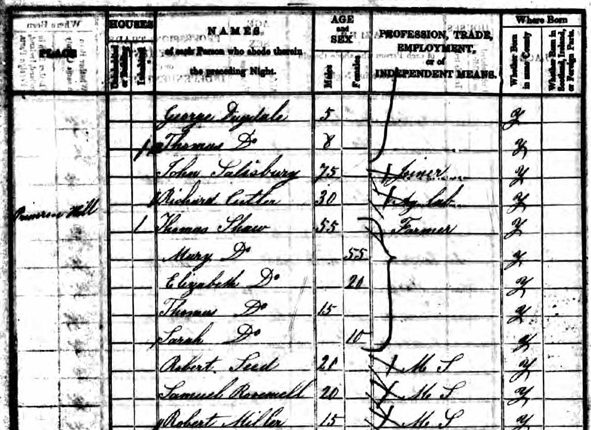 PLACE
HOUSES
Uninhabited or Building
Inhabited
NAMES
of each Person who abode therein
the preceding Night.
AGE
and
SEX
Males
Females
PROFESSION, TRADE,
EMPLOYMENT,
or of
INDEPENDENT MEANS.
Where Born
Whether Born in same County
Whether Born in Scotland, Ireland, or Foreign Parts.
George Dugdale 5 Y
Thomas Do 8 Y
John Salisbury 75 Joiner Y
Richard Cutler 30 Ag Lab Y
Primrose Hill 1 Thomas Shaw 55 Farmer Y
Mary Do 55 Y
Elizabeth Do 20 Y
Thomas Do 15 Y
Sarah Do 10 Y
Robert Seed 20 M S Y
Samuel 20 M S Y
Robert Miller 15 M S Y